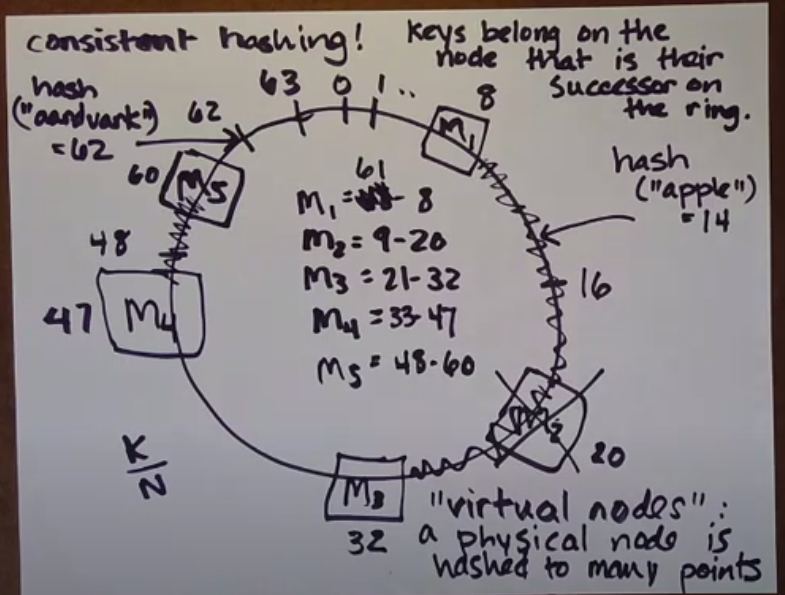 consistent hashing!
keys belong on the
node that is their
successor on
the ring.
hash
("aardvark")
= 62
62
63
0
1..
8
M1
hash
("apple")
= 14
60
M5
61
M1 = - 8
M2 = 9-20
M3 = 21-32
M4 = 33-47
M5 = 48-60
48
47
M4
16
M2
20
K/N
M3
32
"virtual nodes":
a physical node is
hashed to many points